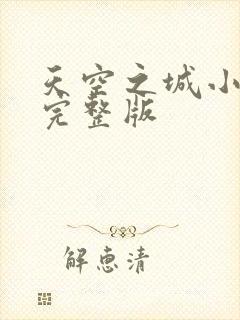 天空之城小
完整版
解惠清